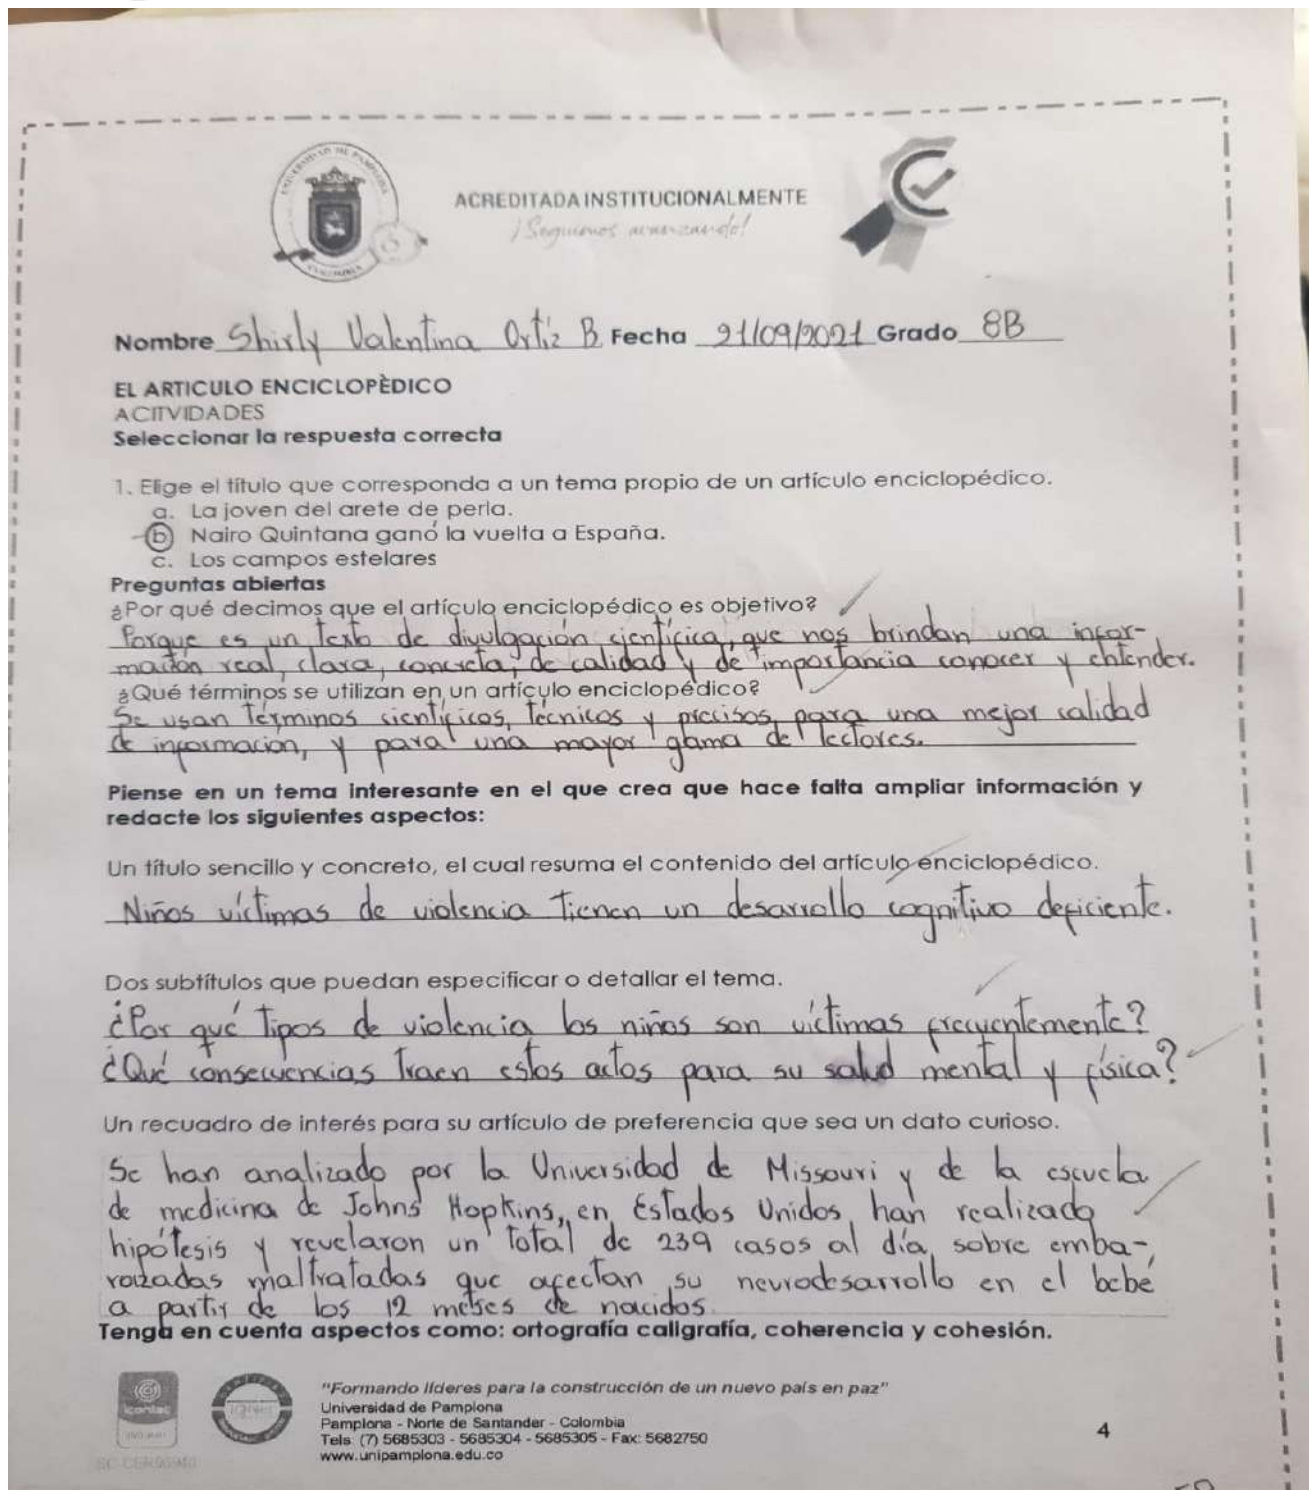 ACREDITADA INSTITUCIONALMENTE
¡Seguimos avanzando!
Nombre Shirly Valentina Ortiz B Fecha 21/09/2021 Grado 8B
EL ARTICULO ENCICLOPÈDICO
ACITVIDADES
Seleccionar la respuesta correcta
1. Elige el título que corresponda a un tema propio de un artículo enciclopédico.
a. La joven del arete de perla.
b Nairo Quintana ganó la vuelta a España.
c. Los campos estelares
Preguntas abiertas
¿Por qué decimos que el artículo enciclopédico es objetivo?
Porque es un texto de divulgación científica, que nos brindan una infor-
mación real, clara, concreta, de calidad y de importancia conocer y entender.
¿Qué términos se utilizan en un artículo enciclopédico?
Se usan términos científicos, técnicos y precisos, para una mejor calidad
de información, y para una mayor gama de lectores.
Piense en un tema interesante en el que crea que hace falta ampliar información y
redacte los siguientes aspectos:
Un título sencillo y concreto, el cual resuma el contenido del artículo enciclopédico.
Niños víctimas de violencia tienen un desarrollo cognitivo deficiente.
Dos subtítulos que puedan especificar o detallar el tema.
¿Por qué tipos de violencia los niños son víctimas frecuentemente?
¿Qué consecuencias traen estos actos para su salud mental y física?
Un recuadro de interés para su artículo de preferencia que sea un dato curioso.
Se han analizado por la Universidad de Missouri y de la escuela
de medicina de Johns Hopkins, en Estados Unidos, han realizado
hipótesis y revelaron un total de 239 casos al día, sobre emba-
razadas maltratadas que afectan su neurodesarrollo en el bebé
a partir de los 12 meses de nacidos.
Tenga en cuenta aspectos como: ortografía caligrafía, coherencia y cohesión.
icontec
IQNet
"Formando líderes para la construcción de un nuevo país en paz"
Universidad de Pamplona
Pamplona - Norte de Santander - Colombia
Tels: (7) 5685303 - 5685304 - 5685305 - Fax: 5682750
www.unipamplona.edu.co
4